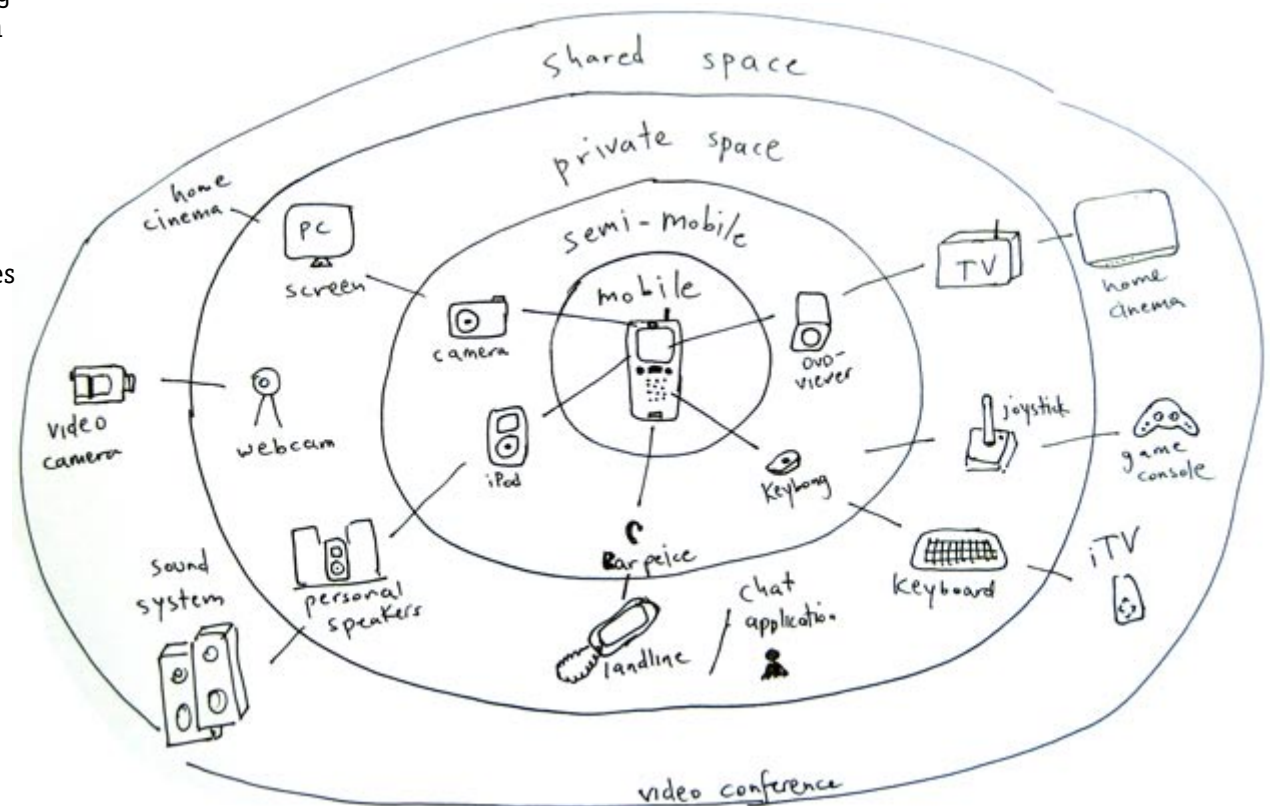 g
n
es
shared space
private space
semi-mobile
mobile
home
cinema
PC
screen
camera
TV
home
cinema
DVD-
viewer
video
camera
webcam
iPod
joystick
game
console
Keybong
Ear peice
sound
system
personal
speakers
landline
chat
application
Keyboard
iTV
video conference